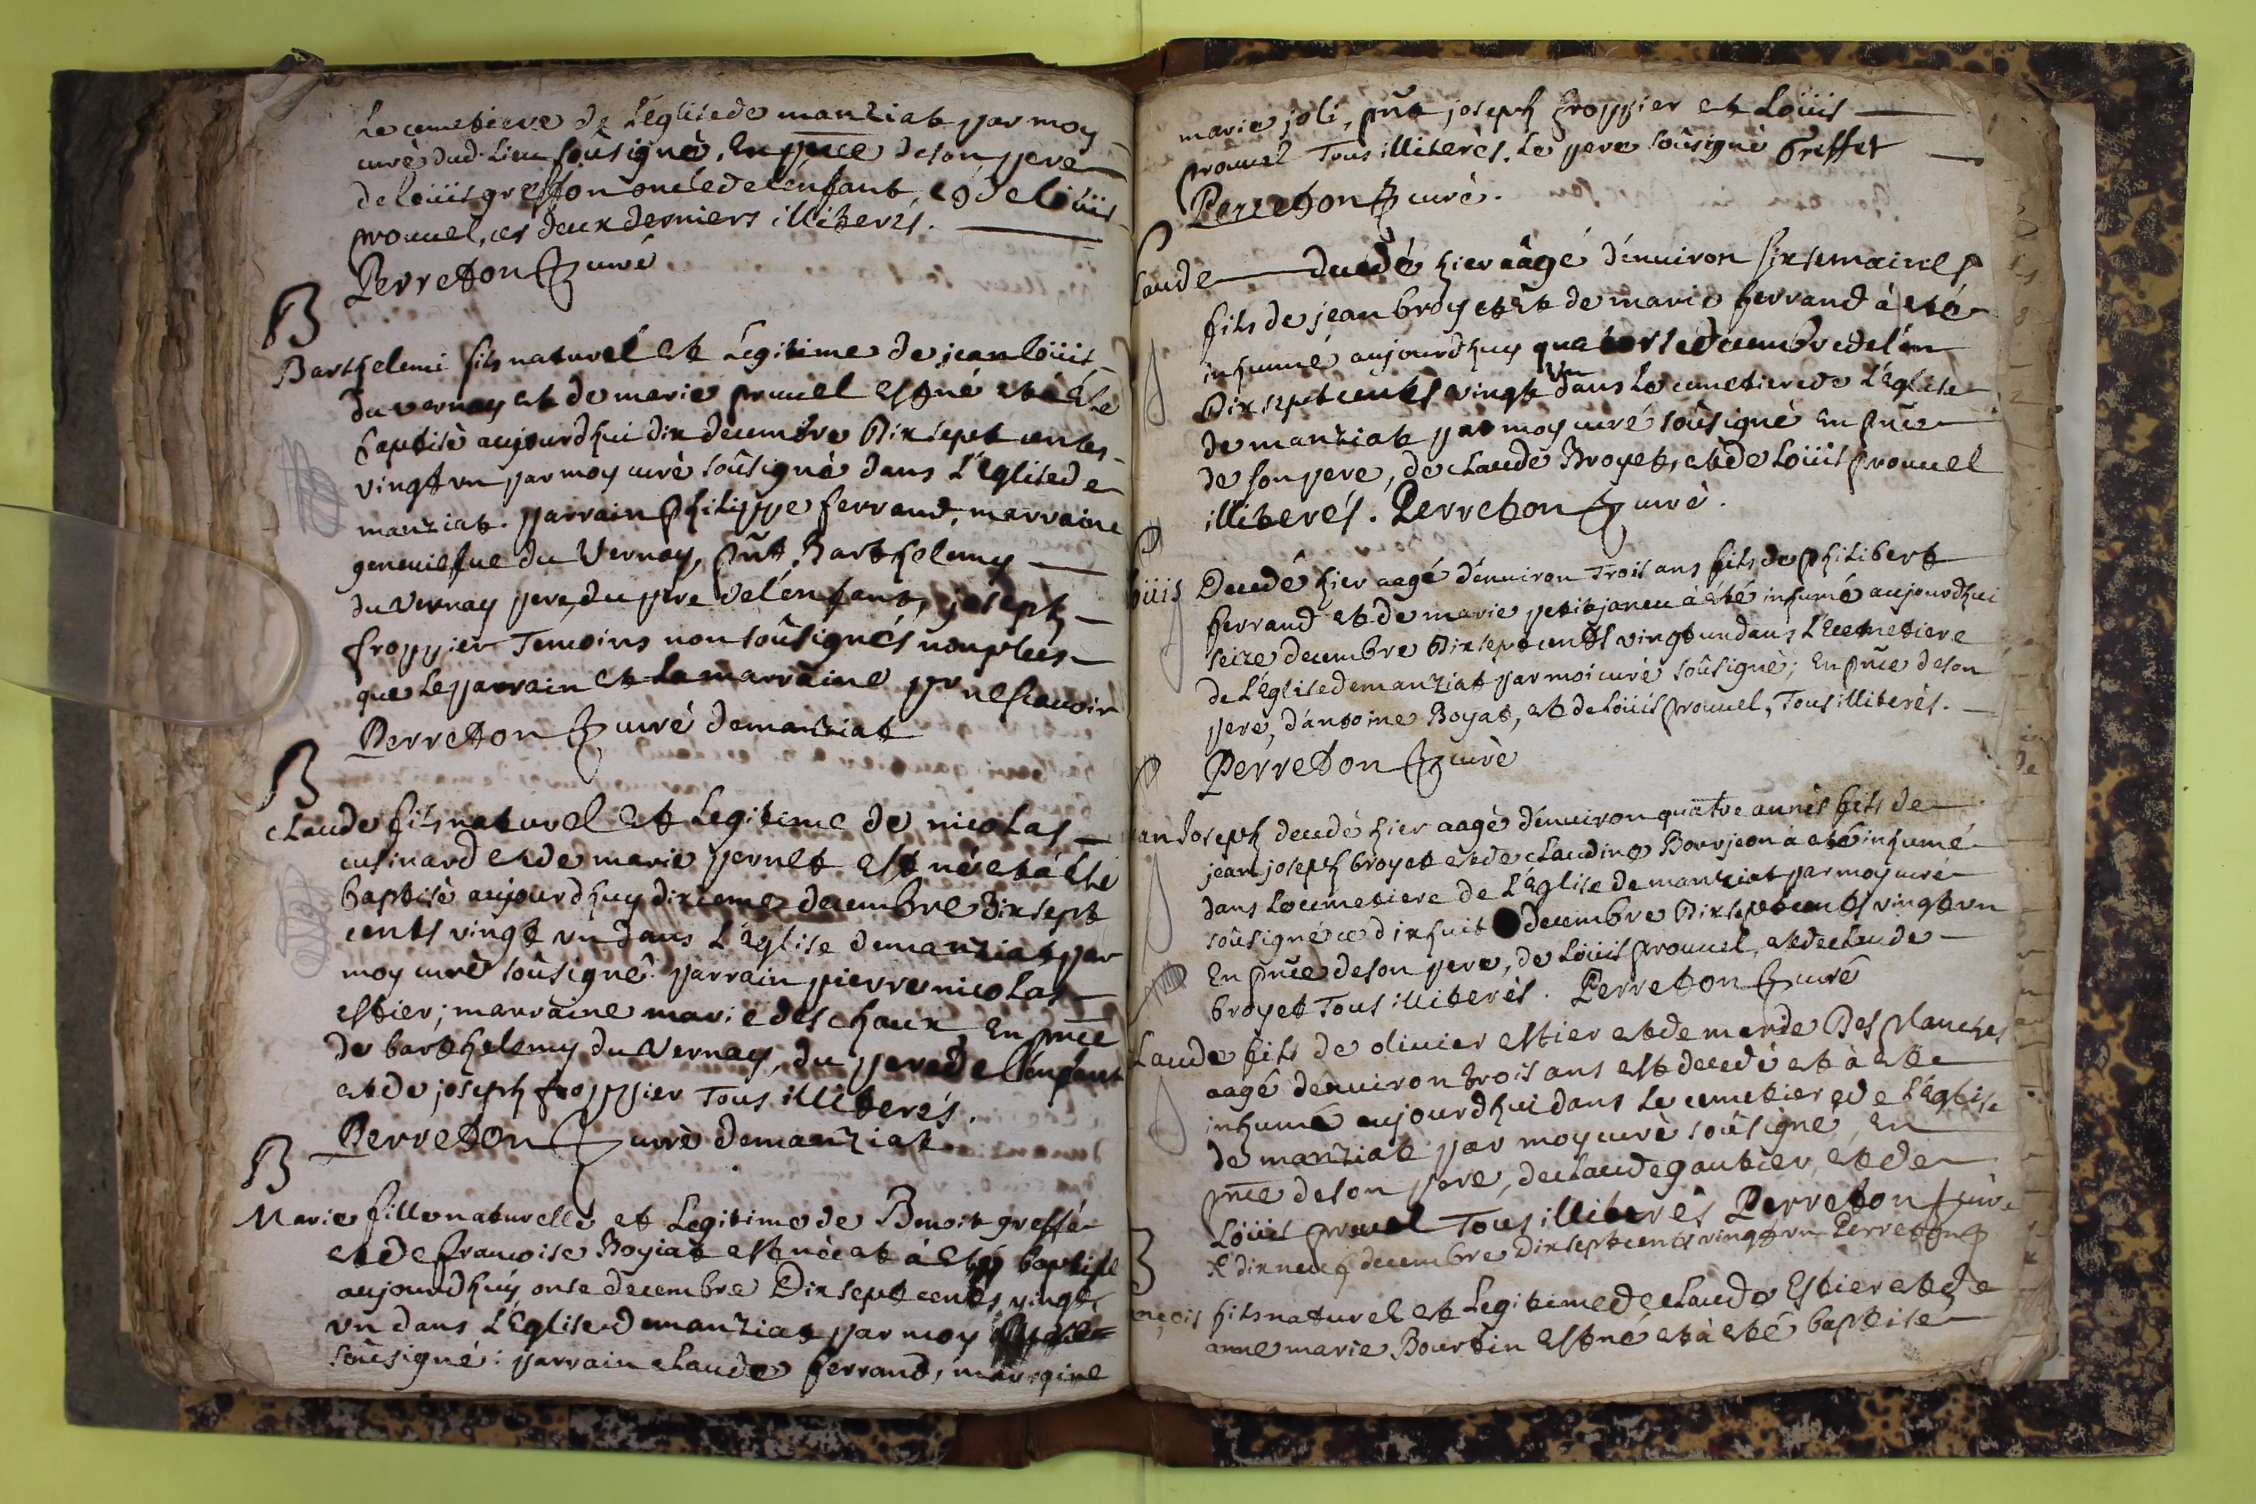 Le cemetiere de L'église de manziat par moy
curé dud. Lieu soûsigné, En pñce de son pere
de loüis greffon oncle de l'enfant, et de loüis
prouuel, ces deux derniers illiterés.
Perreton curé
B
Barthelemi fils naturel et Legitime de jean loüis
du vernay et de marie pruuel est né et à été
baptisé aujourdhui dix decembre Dix sept cents
vingt vn par moy curé soûsigné dans L'Eglise de
manziat. parrain philippe ferrand, marraine
geneuiefue du Vernay, pñt Bartholemy
du vernay pere du pere de l'enfant, joseph
froppier Temoins non soûsignés non plus
que le parrain et la marraine pr ne scauoir
Perreton curé de manziat
B
claude fils naturel et Legitime de nicolas
cusinard et de marie pernet est né et à été
baptisé aujourdhuy dixieme decembre dix sept
cents vingt vn dans L'église de manziat par
moy curé soûsigné. parrain pierre nicolas
estier; marraine marie deschaux En pñce
de barthelemy du vernay, du pere de l'enfant
et de joseph froppier Tous illiterés.
Perreton curé de manziat
B
Marie fille naturelle et Legitime de Benoit greffé
et de francoise Boyiat est née et à été baptisé
aujourdhuy onse decembre Dix sept cents vingt
vn dans L'Eglise de manziat par moy
soûsigné: parrain claude ferrand, marraine
marie joli, pñt joseph froppier et Loüis
prouuel Tous illiterés. Le pere soûsigné Greffet
Perreton curé.
laude decedé hier aâgé d'enuiron six semaines
fils de jean broyet et de marie ferrand à eté
inhumé aujourdhuy quatorse decembre de l'an
Dix sept cents vingt vn dans Le cemetiere de L'Eglise
de manziat par moy curé soûsigné En pñce
de son pere, de claude Broyet, et de Loüis prouuel
illiterés. Perreton curé.
oüis Decedé hier aagé d'enuiron Trois ans fils de philibert
ferrand et de marie petitjan à été inhumé aujourdhui
seize decembre Dix sept cents vingt un dans Le cemetiere
de L'Eglise de manziat par moi curé soûsigné; En pñce de son
pere, d'antoine Boyat, et de Loüis prouuel, Tous illiterés.
Perreton curé
an Joseph decedé hier aagé d'enuiron quatre annés fils de
jean joseph broyet et de claudine Bourjeon à eté inhumé
dans Le cemetiere de L'Eglise de manziat par moy curé
soûsigné ce dixhuit decembre Dix sept cents vingt vn
En pñce de son pere, de Loüis prouuel, et de claude
broyet Tous illiterés. Perreton curé
laude fils de oliuier estier et de marie Des planches
aagé d'enuiron trois ans est decedé et à eté
inhumé aujourdhui dans Le cemetiere de L'Eglise
de manziat par moy curé soûsigné, En
pñce de son pere, de claude gautier, et de
Loüis prouuel Tous illiterés Perreton curé
dix neuf decembre Dix sept cents vingt vn Perreton
B
ençois fils naturel et Legitime de claude Estier et de
anne marie Bourtin est né et à eté baptisé